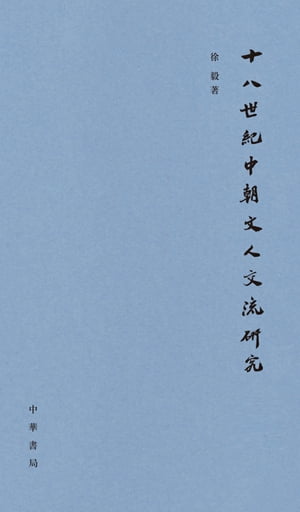 十八世紀中朝文人交流研究
徐毅著
中華書局